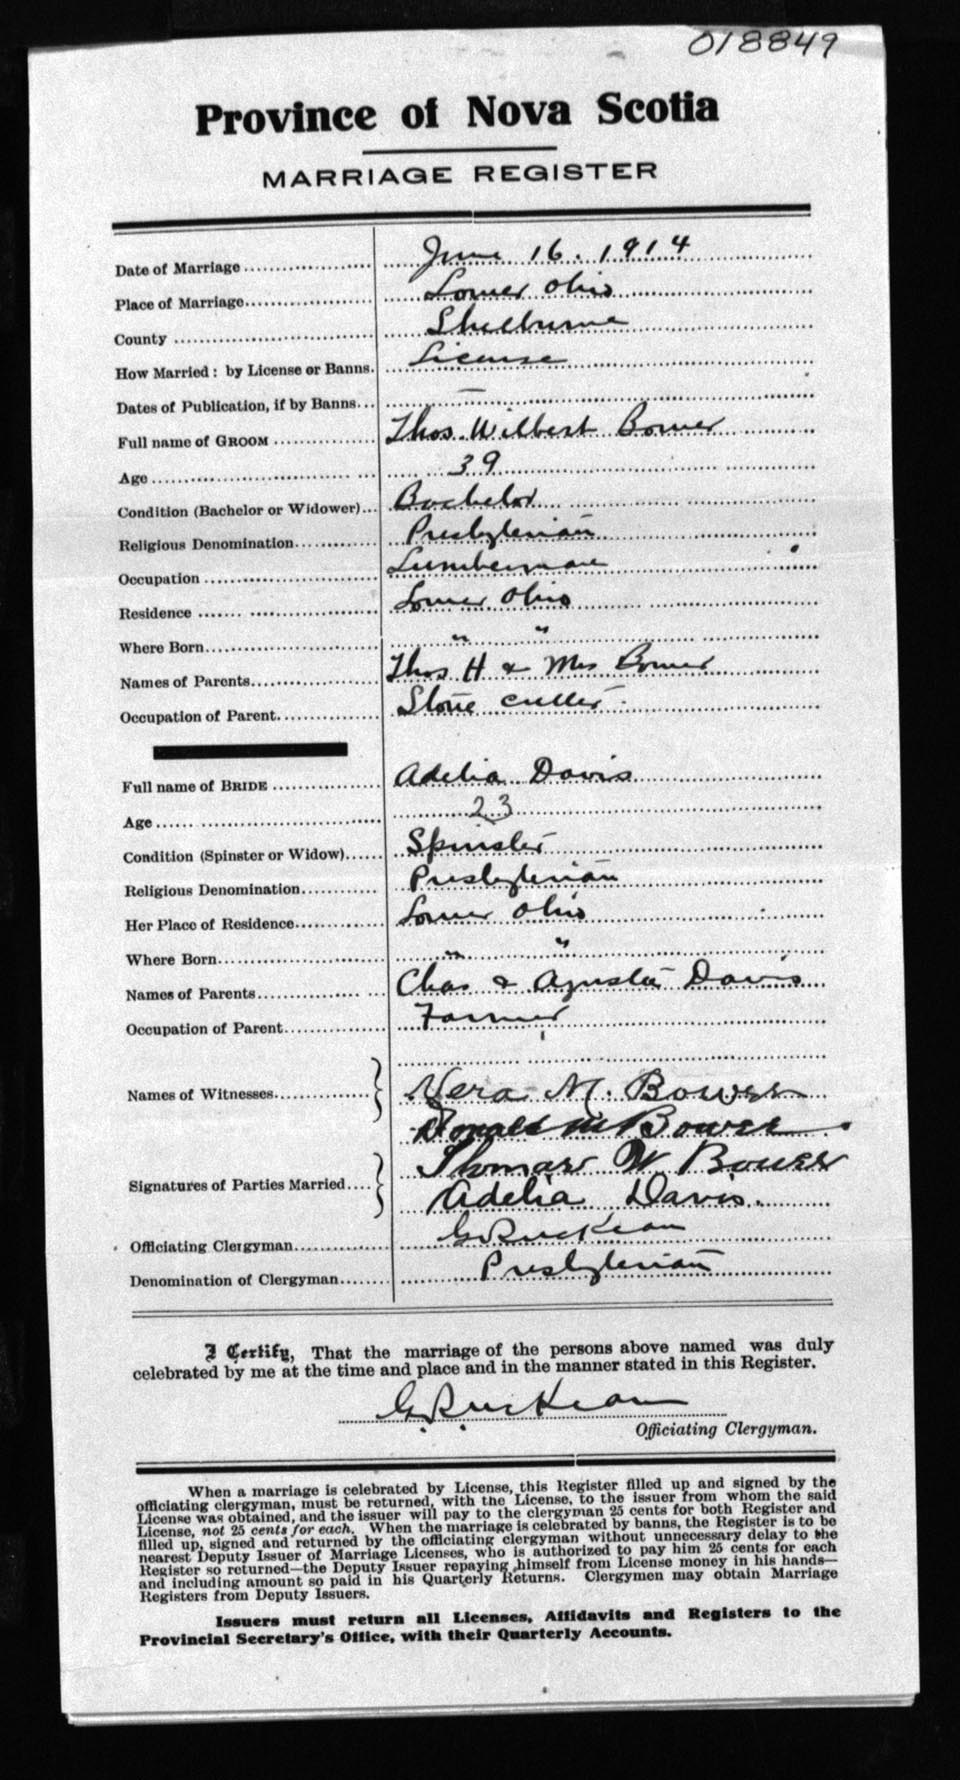 018849
Province of Nova Scotia
MARRIAGE REGISTER
Date of Marriage June 16. 1914
Place of Marriage Lower Ohio
County Shelburne
How Married: by License or Banns. License
Dates of Publication, if by Banns —
Full name of GROOM Thos. Wilbert Bower
Age 39
Condition (Bachelor or Widower) Bachelor
Religious Denomination Presbyterian
Occupation Lumberman
Residence Lower Ohio
Where Born " "
Names of Parents Thos H & Mrs Bower
Occupation of Parent Stone cutter
Full name of BRIDE Adelia Davis
Age 23
Condition (Spinster or Widow) Spinster
Religious Denomination Presbyterian
Her Place of Residence Lower Ohio
Where Born " "
Names of Parents Chas & Agusta Davis
Occupation of Parent Farmer
Names of Witnesses Vera M. Bower
Donald M Bower
Signatures of Parties Married Thomas W Bower
Adelia Davis.
Officiating Clergyman
Denomination of Clergyman Presbyterian
I Certify, That the marriage of the persons above named was duly
celebrated by me at the time and place and in the manner stated in this Register.
Officiating Clergyman.
When a marriage is celebrated by License, this Register filled up and signed by the
officiating clergyman, must be returned, with the License, to the issuer from whom the said
License was obtained, and the issuer will pay to the clergyman 25 cents for both Register and
License, not 25 cents for each. When the marriage is celebrated by banns, the Register is to be
filled up, signed and returned by the officiating clergyman without unnecessary delay to the
nearest Deputy Issuer of Marriage Licenses, who is authorized to pay him 25 cents for each
Register so returned—the Deputy Issuer repaying himself from License money in his hands—
and including amount so paid in his Quarterly Returns. Clergymen may obtain Marriage
Registers from Deputy Issuers.
Issuers must return all Licenses, Affidavits and Registers to the
Provincial Secretary's Office, with their Quarterly Accounts.